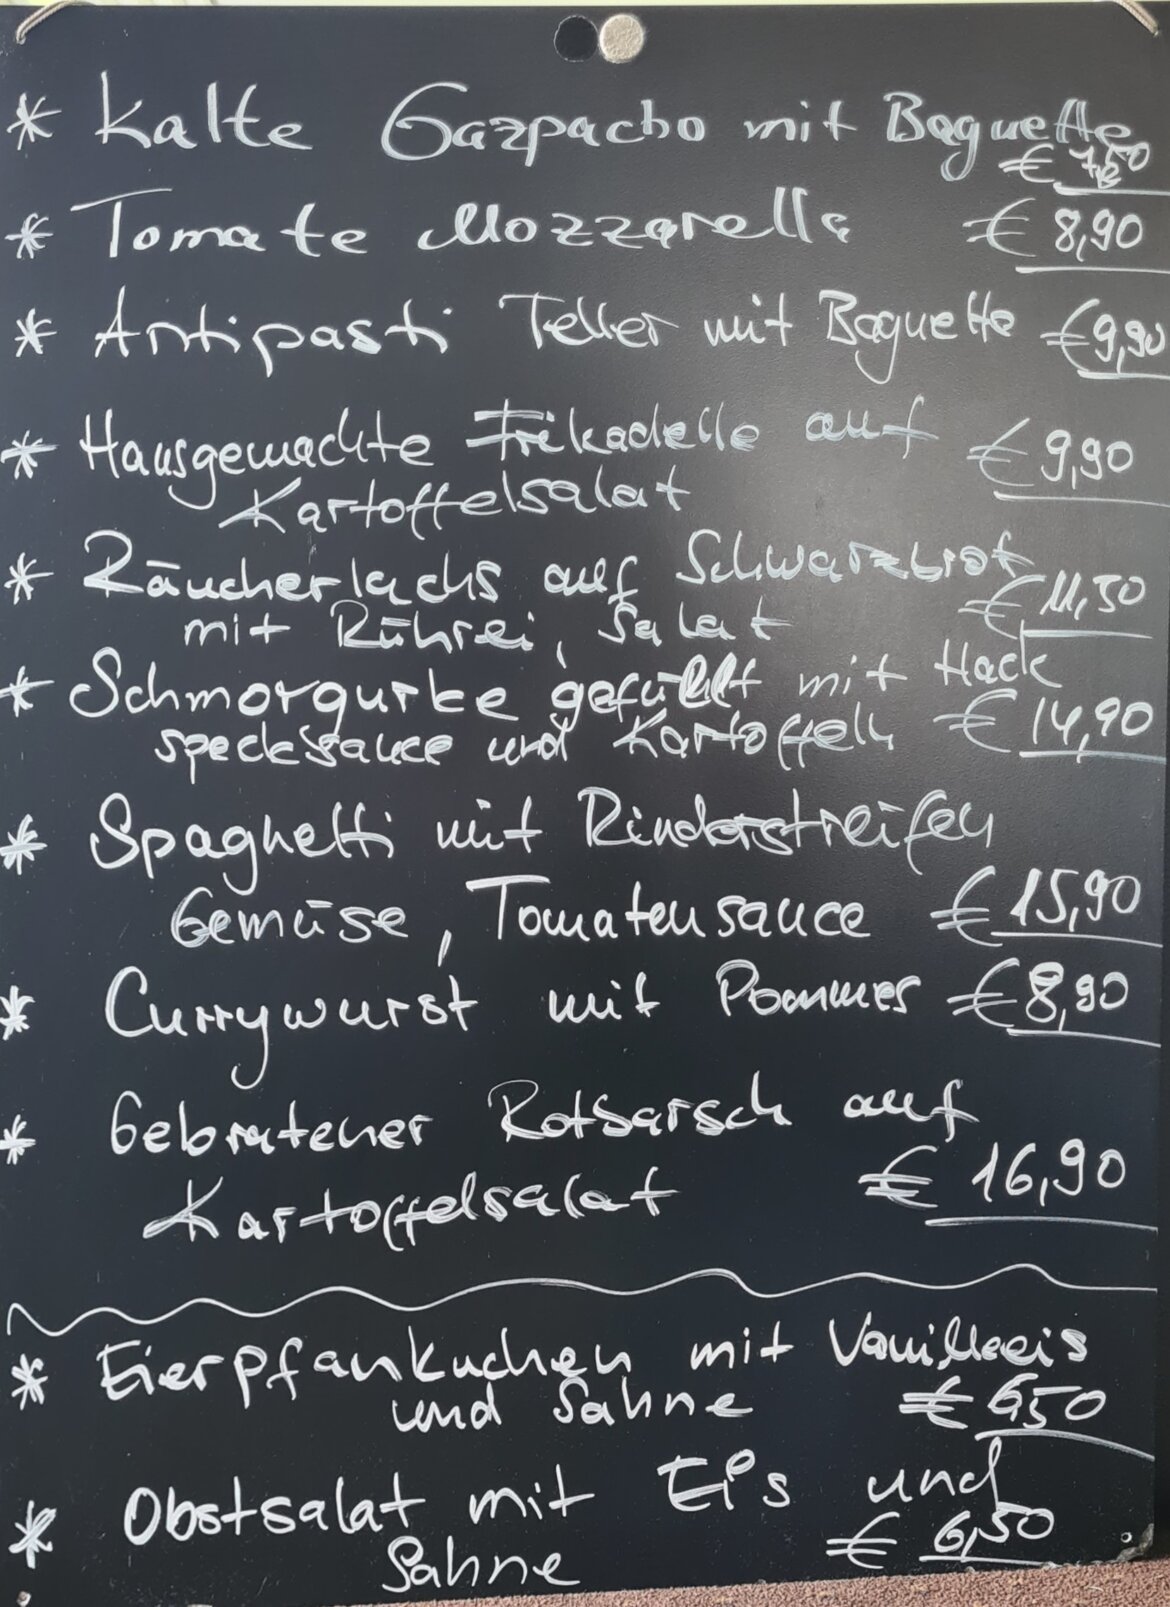 * Kalte Gazpacho mit Baguette
€ 7,50
* Tomate Mozzarella € 8,90
* Antipasti Teller mit Baguette € 9,90
* Hausgemachte Frikadelle auf € 9,90
Kartoffelsalat
* Räucherlachs auf Schwarzbrot € 11,50
mit Rührei, Salat
* Schmorgurke gefüllt mit Hack
specksauce und Kartoffeln € 14,90
* Spaghetti mit Rinderstreifen
Gemüse, Tomatensauce € 15,90
* Currywurst mit Pommes € 8,90
* Gebratener Rotsarsch auf
Kartoffelsalat € 16,90
* Eierpfankuchen mit Vanilleeis
und Sahne € 6,50
* Obstsalat mit Eis und
Sahne € 6,50